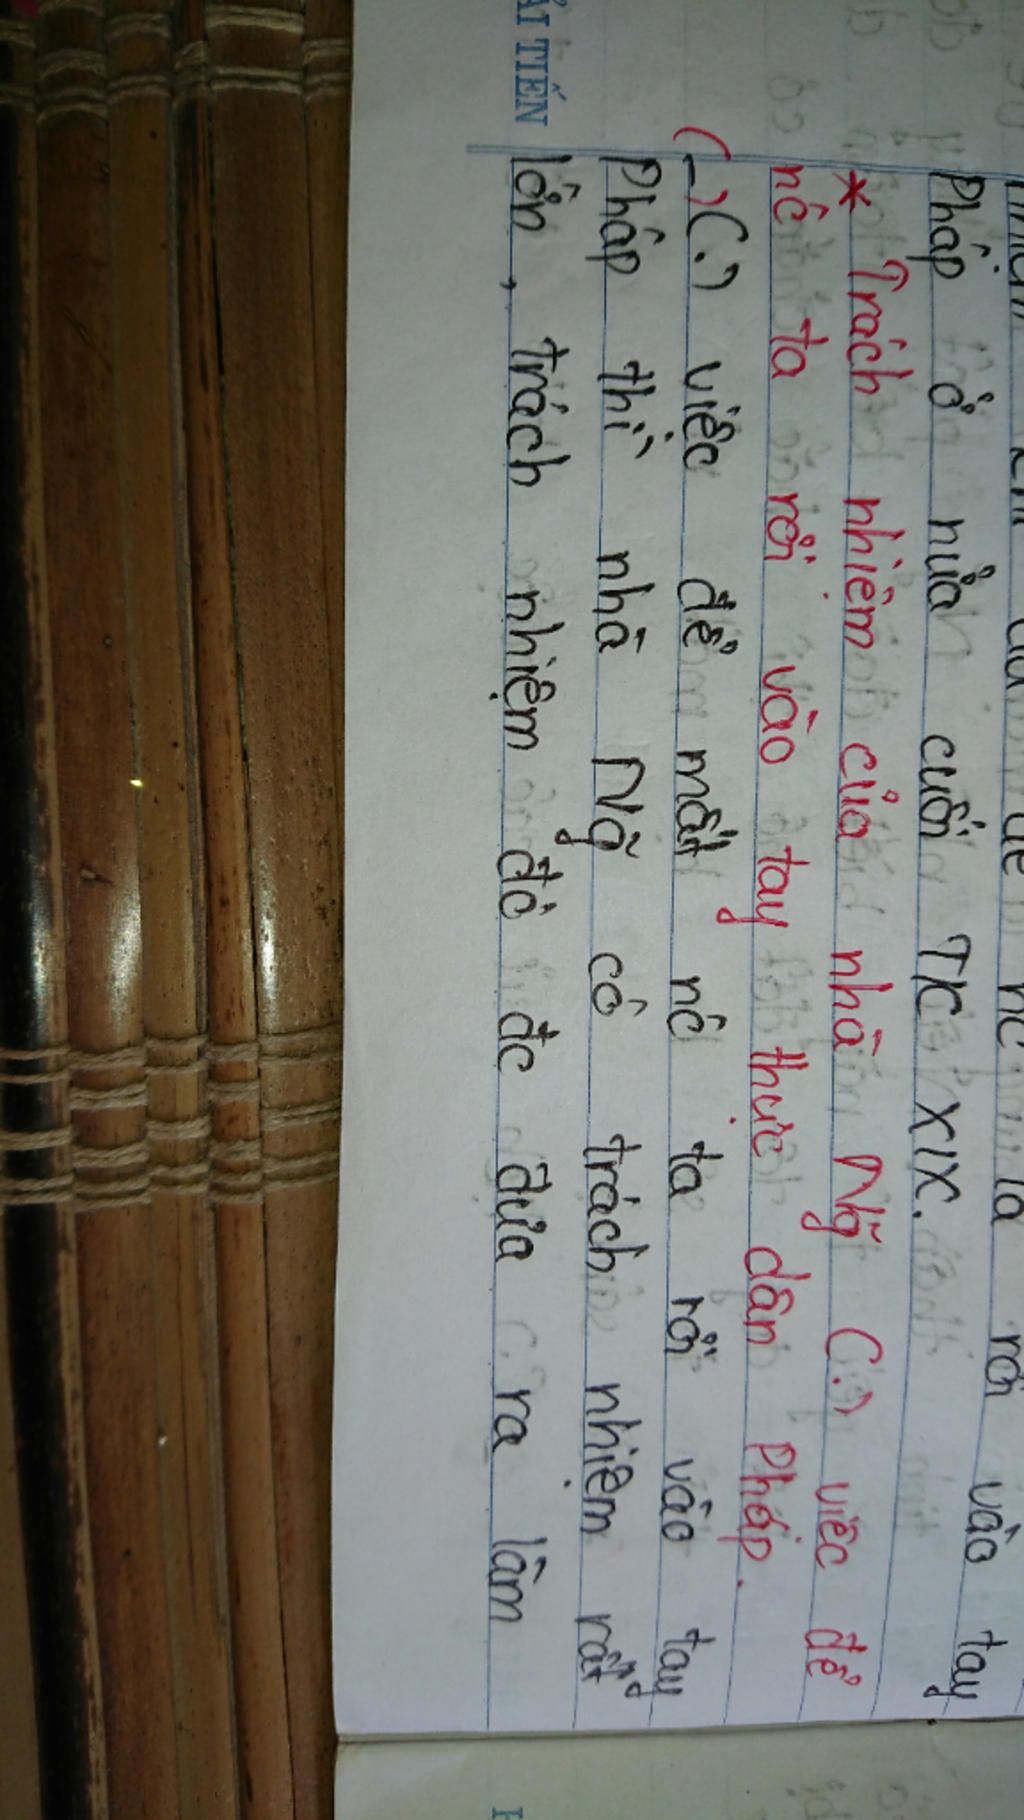 rơi vào tay
Pháp ở nửa cuối TK XIX.
* Trách nhiệm của nhà Ng̃ (.) việc để
nc ta rơi vào tay thực dân Pháp.
(_) (.) việc để mất nc ta rơi vào tay
Pháp thì nhà Ng̃ có trách nhiệm rất
lớn, trách nhiệm đó đc đưa ra làm
ẢI TIẾN